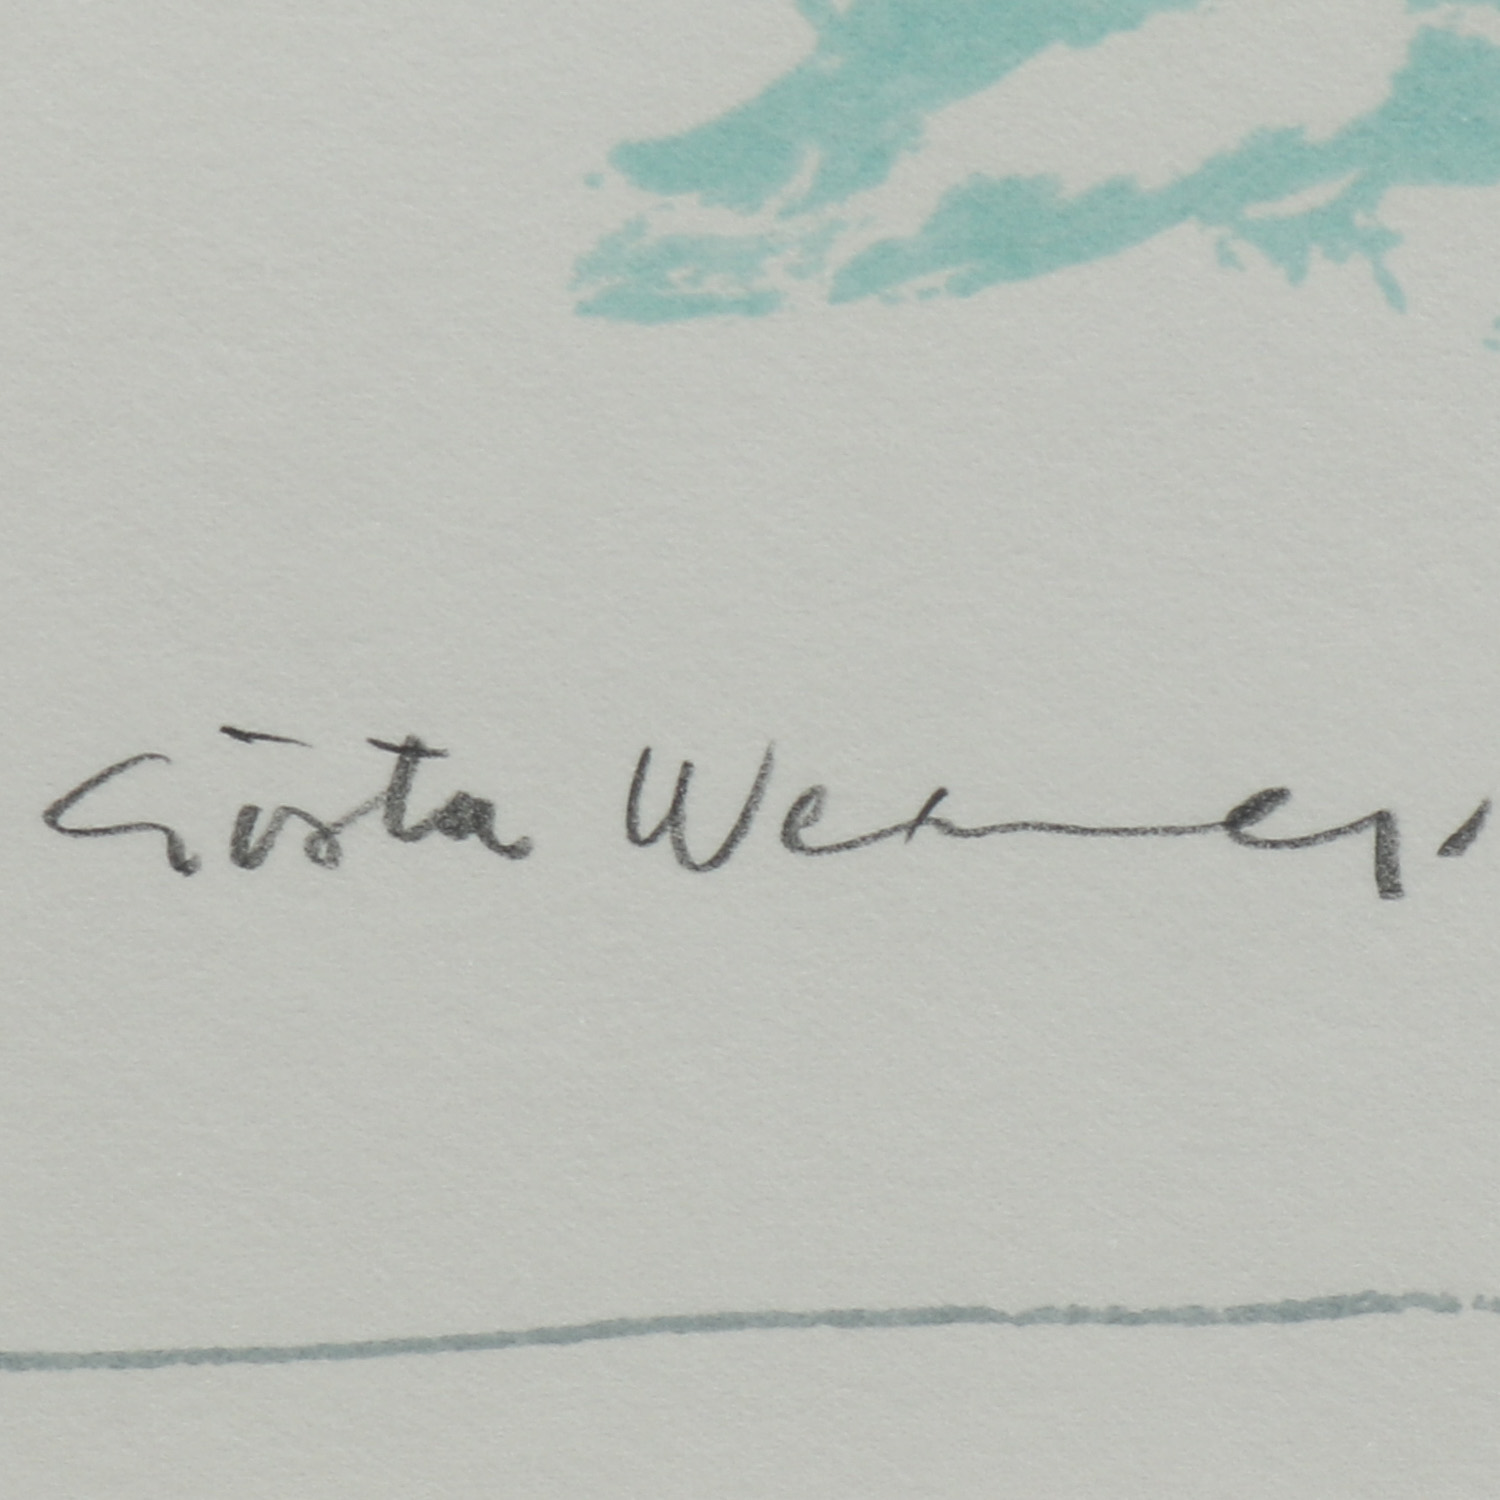 Gösta Werner